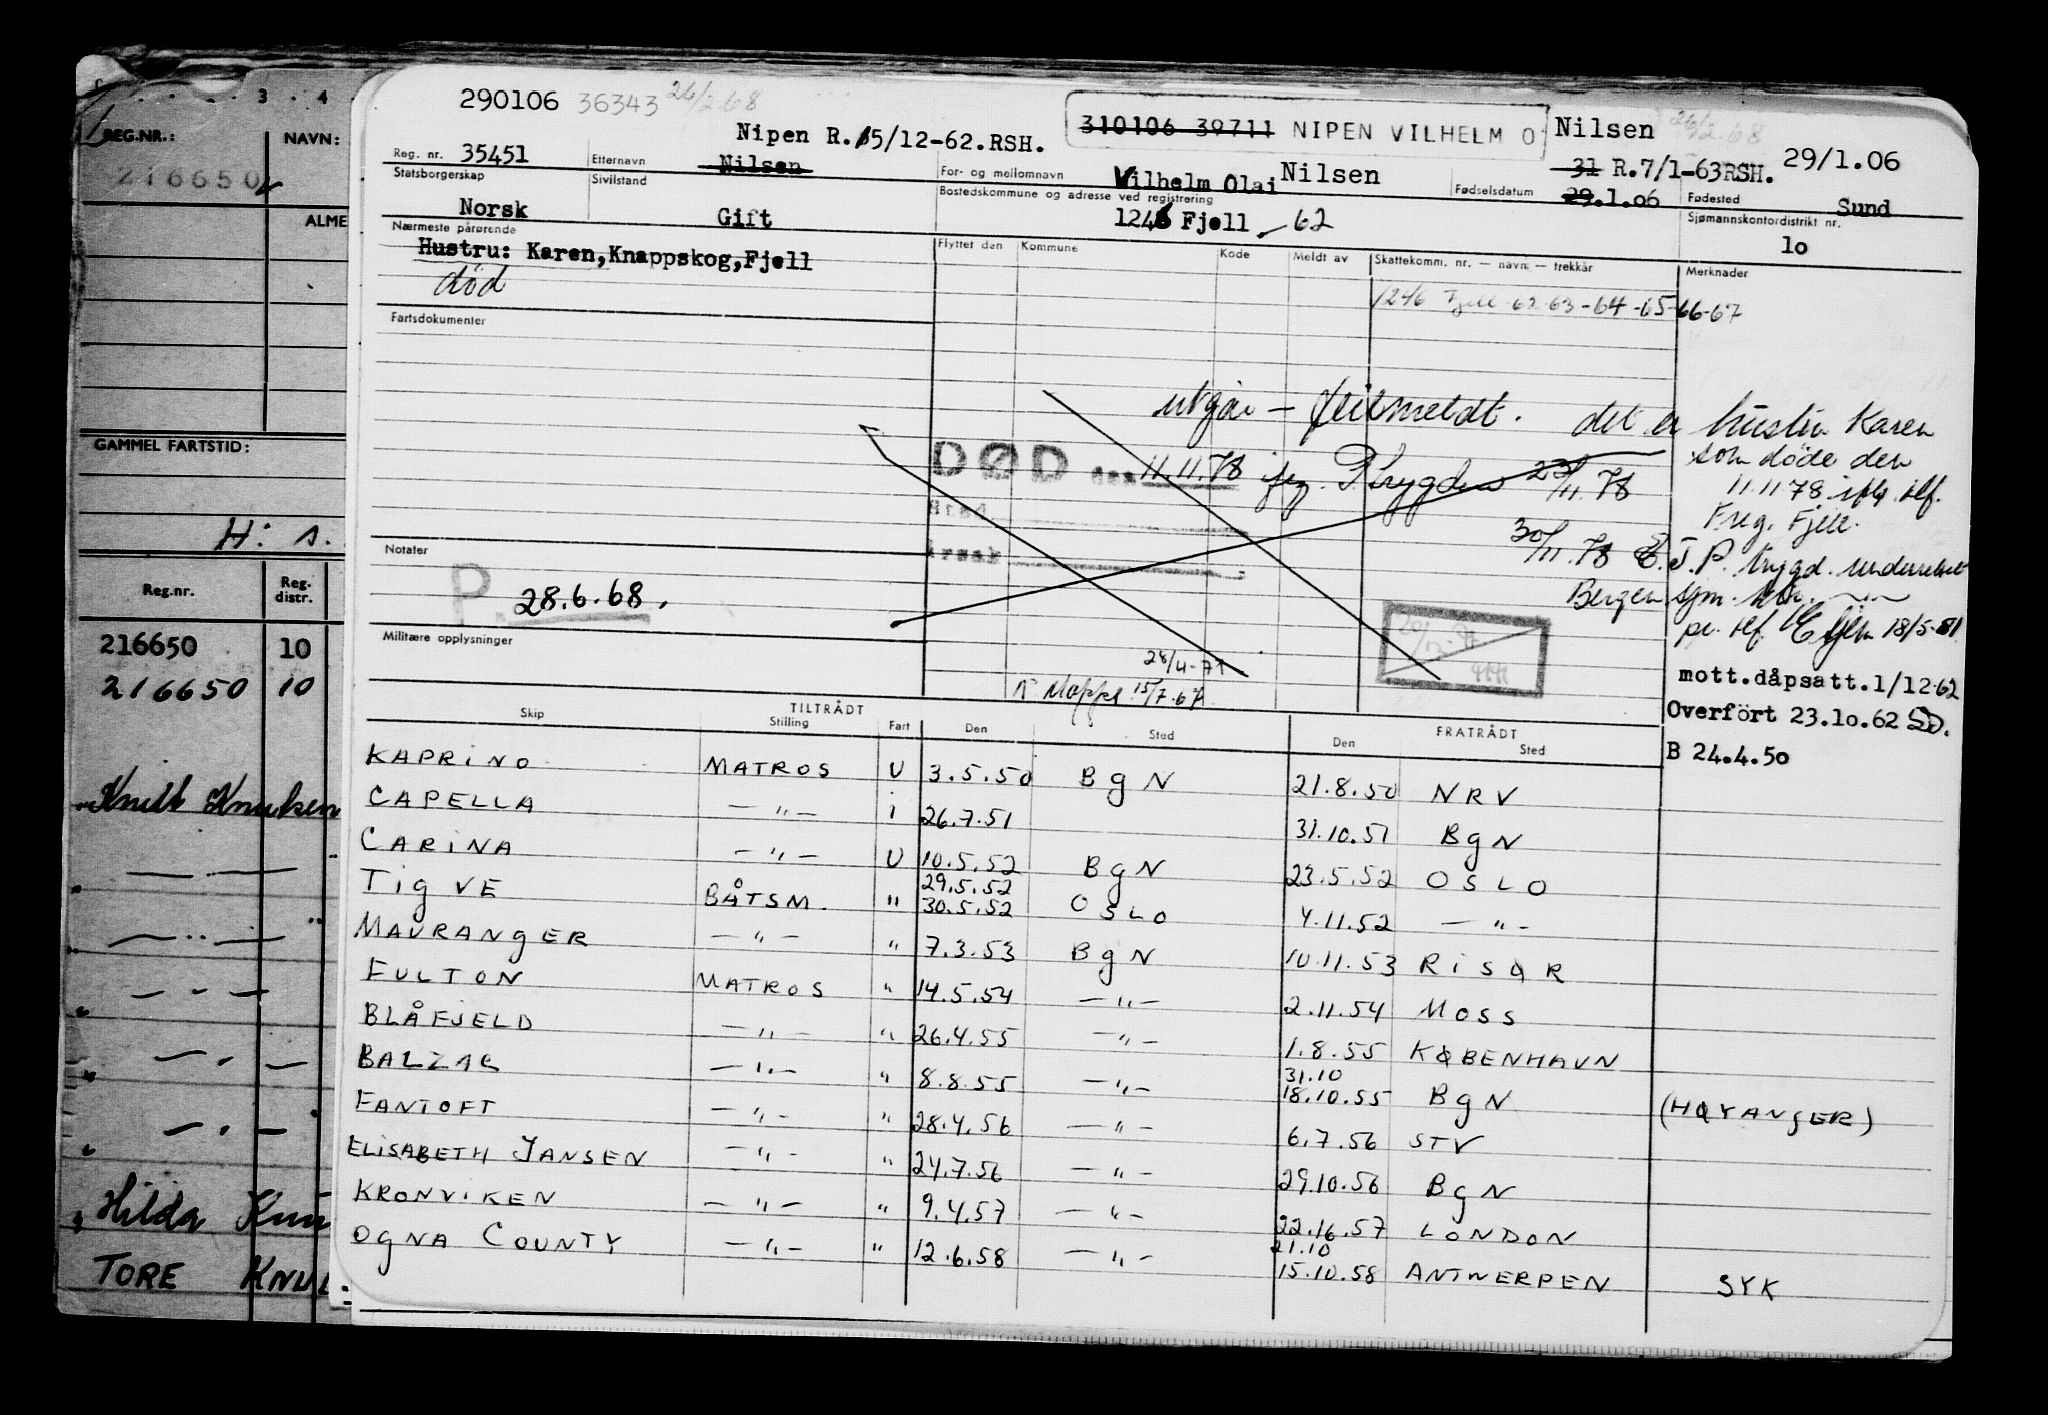 3 . 4
REG.NR.:
NAVN:
216650
ALME
GAMMEL FARTSTID:
H: s.
Reg.nr.
Reg. distr.
216650 10
216650 10
Knut Knutsen
— " —
— " —
— " —
— " —
— " —
Hilda Knu
TORE KNU
290106 36343 26/2.68
Nipen R.15/12-62.RSH.
310106 39711 NIPEN VILHELM O Nilsen
26/2.68
Reg. nr. 35451
Etternavn Nilsen
For- og mellomnavn Vilhelm Olai Nilsen
Fødselsdatum 31 R.7/1-63RSH. 29/1.06
29.1.06
Fødested Sund
Statsborgerskap Norsk
Sivilstand Gift
Bostedskommune og adresse ved registrering
1246 Fjell - 62
Sjømannskontordistrikt nr.
10
Nærmeste pårørende
Hustru: Karen,Knappskog,Fjell
død
Flyttet den Kommune Kode Meldt av Skattekomm. nr. — navn — trekkår Merknader
1246 Fjell 62-63-64-65-66-67
Fartsdokumenter
utgår – feilmeldt. det er hustru Karen
som døde den
11.11.78 iflg. tlf.
F.reg. Fjell.
DØD den 11.11.78 jfg. P.trygden 23/11.78
Sted
Årsak
30/11.78 E.J. P. trygd. underrettet
Bergen sjm. ktr. — " —
pr. tlf. 18/5.81
Notater
P. 28.6.68.
Militære opplysninger
28/4-71
Mappe 15/7.67
mott.dåpsatt.1/12.62
Overført 23.10.62 SD.
B 24.4.50
Skip TILTRÅDT Stilling Fart Den Sted FRATRÅDT Den Sted
KAPRINO MATROS U 3.5.50 BgN 21.8.50 NRV
CAPELLA — " — i 26.7.51 31.10.51 BgN
CARINA — " — U 10.5.52 BgN 23.5.52 OSLO
29.5.52
TigVE BÅTSM. " 30.5.52 OSLO 4.11.52 — " —
MAURANgER — " — " 7.3.53 BgN 10.11.53 RISØR
FULTON MATROS " 14.5.54 — " — 2.11.54 MOSS
BLÅFJELD — " — " 26.4.55 — " — 1.8.55 KØBENHAVN
31.10
BALZAC — " — " 8.8.55 — " — 18.10.55 BgN (HØYANgER)
FANTOFT — " — " 28.4.56 — " — 6.7.56 STV
ELISABETH JANSEN — " — " 24.7.56 — " — 29.10.56 BgN
KRONVIKEN — " — " 9.4.57 — " — 22.16.57 LONDON
21.10
OgNA COUNTY — " — " 12.6.58 — " — 15.10.58 ANTWERPEN SYK